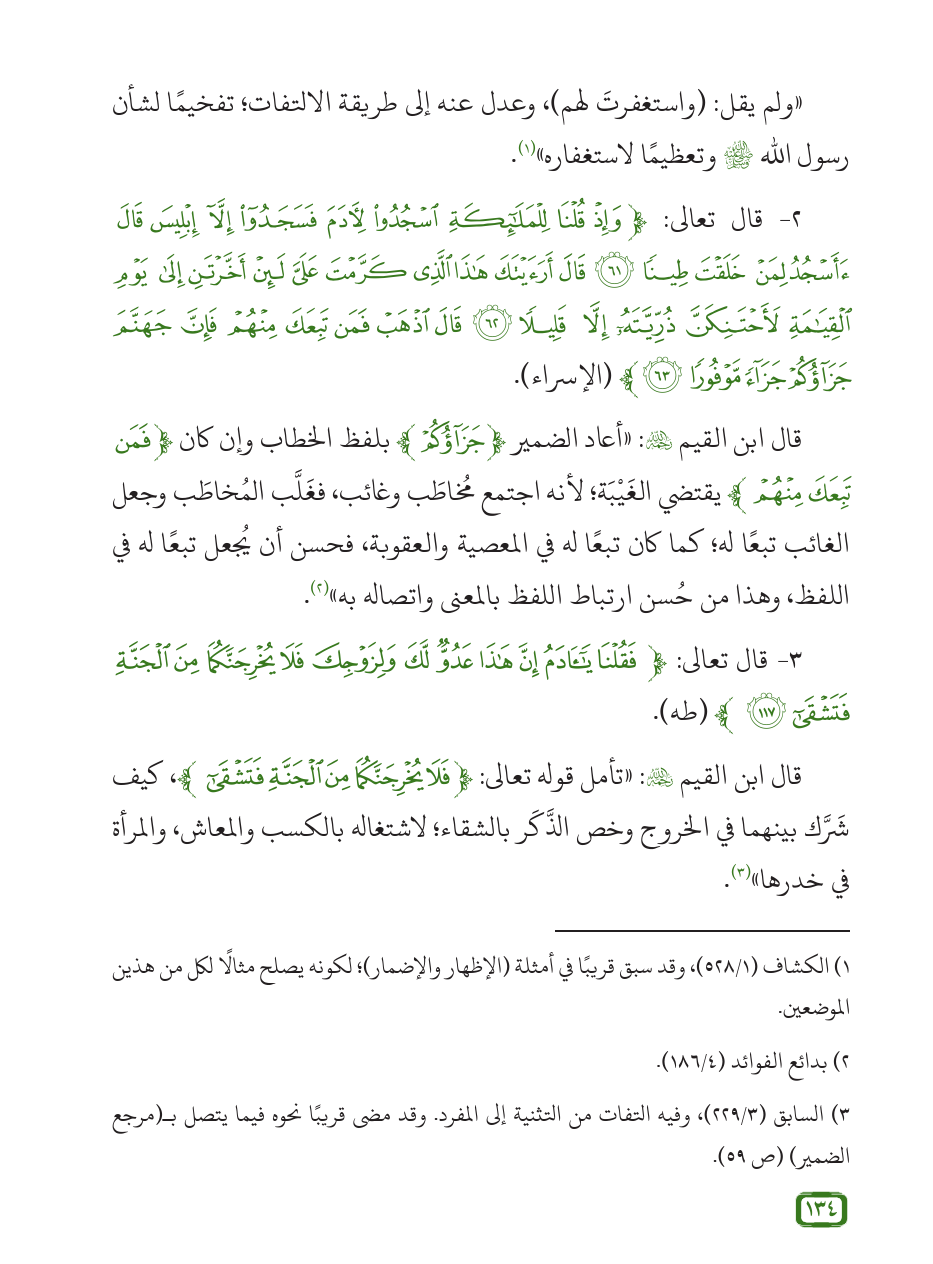 «ولم يقل: (واستغفرتَ لهم)، وعدل عنه إلى طريقة الالتفات؛ تفخيمًا لشأن
رسول الله ﷺ وتعظيمًا لاستغفاره»(١).
٢- قال تعالى: ﴿وَإِذۡ قُلۡنَا لِلۡمَلَٰٓئِكَةِ ٱسۡجُدُواْ لِأٓدَمَ فَسَجَدُوٓاْ إِلَّآ إِبۡلِيسَ قَالَ
ءَأَسۡجُدُ لِمَنۡ خَلَقۡتَ طِينٗا ٦١ قَالَ أَرَءَيۡتَكَ هَٰذَا ٱلَّذِي كَرَّمۡتَ عَلَيَّ لَئِنۡ أَخَّرۡتَنِ إِلَىٰ يَوۡمِ
ٱلۡقِيَٰمَةِ لَأَحۡتَنِكَنَّ ذُرِّيَّتَهُۥٓ إِلَّا قَلِيلٗا ٦٢ قَالَ ٱذۡهَبۡ فَمَن تَبِعَكَ مِنۡهُمۡ فَإِنَّ جَهَنَّمَ
جَزَآؤُكُمۡ جَزَآءٗ مَّوۡفُورٗا ٦٣﴾ (الإسراء).
قال ابن القيم رحمه الله: «أعاد الضمير ﴿جَزَآؤُكُمۡ﴾ بلفظ الخطاب وإن كان ﴿فَمَن
تَبِعَكَ مِنۡهُمۡ﴾ يقتضي الغَيْبَة؛ لأنه اجتمع مُخاطَب وغائب، فغَلَّب المُخاطَب وجعل
الغائب تبعًا له؛ كما كان تبعًا له في المعصية والعقوبة، فحسن أن يُجعل تبعًا له في
اللفظ، وهذا من حُسن ارتباط اللفظ بالمعنى واتصاله به»(٢).
٣- قال تعالى: ﴿فَقُلۡنَا يَٰٓـَٔادَمُ إِنَّ هَٰذَا عَدُوّٞ لَّكَ وَلِزَوۡجِكَ فَلَا يُخۡرِجَنَّكُمَا مِنَ ٱلۡجَنَّةِ
فَتَشۡقَىٰٓ ١١٧﴾ (طه).
قال ابن القيم رحمه الله: «تأمل قوله تعالى: ﴿فَلَا يُخۡرِجَنَّكُمَا مِنَ ٱلۡجَنَّةِ فَتَشۡقَىٰٓ﴾، كيف
شَرَّك بينهما في الخروج وخص الذَّكَر بالشقاء؛ لاشتغاله بالكسب والمعاش، والمرأة
في خدرها»(٣).
١) الكشاف (٥٢٨/١)، وقد سبق قريبًا في أمثلة (الإظهار والإضمار)؛ لكونه يصلح مثالًا لكل من هذين
الموضعين.
٢) بدائع الفوائد (١٨٦/٤).
٣) السابق (٢٢٩/٣)، وفيه التفات من التثنية إلى المفرد. وقد مضى قريبًا نحوه فيما يتصل بـ(مرجع
الضمير) (ص ٥٩).
١٣٤